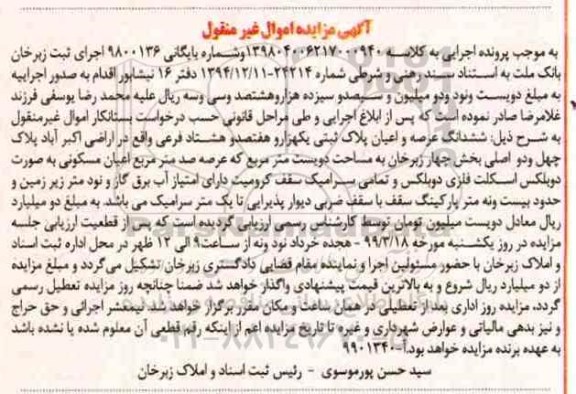 آگهی مزایده اموال غیر منقول
به موجب پرونده اجرایی به کلاسه ۱۳۹۸۰۴۰۰۶۲۱۷۰۰۰۹۴۰ وشماره بایگانی ۹۸۰۰۱۳۶ اجرای ثبت زبرخان
بانک ملت به استناد سند رهنی و شرطی شماره ۲۴۲۱۴-۱۳۹۴/۱۲/۱۱ دفتر ۱۶ نیشابور اقدام به صدور اجراییه
به مبلغ دویست ونود ودو میلیون و سیصدو سیزده هزاروهشتصد وسی وسه ریال علیه محمد رضا یوسفی فرزند
غلامرضا صادر نموده است که پس از ابلاغ اجرایی و طی مراحل قانونی حسب درخواست بستانکار اموال غیرمنقول
به شرح ذیل: ششدانگ عرصه و اعیان پلاک ثبتی یکهزارو هفتصدو هشتاد فرعی واقع در اراضی اکبر آباد پلاک
چهل ودو اصلی بخش چهار زبرخان به مساحت دویست متر مربع که عرصه صد متر مربع اعیان مسکونی به صورت
دوبلکس اسکلت فلزی دوبلکس و تمامی سرامیک سقف کرومیت دارای امتیاز آب برق گاز و نود متر زیر زمین و
حدود بیست ونه متر پارکینگ سقف با سقف ضربی دیوار پذیرایی تا یک متر سرامیک می باشد. به مبلغ دو میلیارد
ریال معادل دویست میلیون تومان توسط کارشناس رسمی ارزیابی گردیده است که پس از قطعیت ارزیابی جلسه
مزایده در روز یکشنبه مورخه ۹۹/۳/۱۸ - هجده خرداد نود ونه از ساعت۹ الی ۱۲ ظهر در محل اداره ثبت اسناد
و املاک زبرخان با حضور مسئولین اجرا و نماینده مقام قضایی دادگستری زبرخان تشکیل می‌گردد و مبلغ مزایده
از دو میلیارد ریال شروع و به بالاترین قیمت پیشنهادی واگذار خواهد شد ضمنا چنانچه روز مزایده تعطیل رسمی
گردد، مزایده روز اداری بعداز تعطیلی در همان ساعت و مکان مقرر برگزار خواهد شد. نیمعشر اجرائی و حق حراج
و نیز بدهی مالیاتی و عوارض شهرداری و غیره تا تاریخ مزایده اعم از اینکه رقم قطعی آن معلوم شده یا نشده باشد
به عهده برنده مزایده خواهد بود.آ-۹۹۰۱۳۴۰
سید حسن پورموسوی - رئیس ثبت اسناد و املاک زبرخان